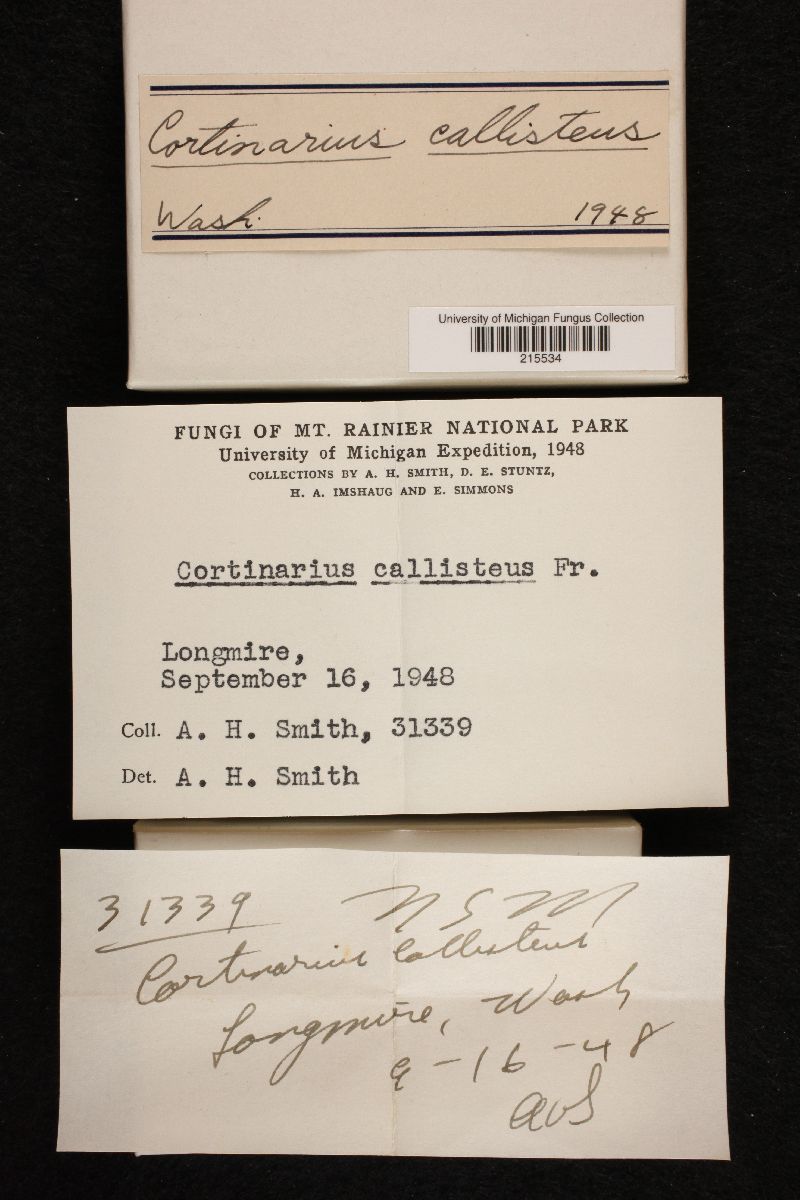 Cortinarius callisteus
Wash. 1948
University of Michigan Fungus Collection
215534
FUNGI OF MT. RAINIER NATIONAL PARK
University of Michigan Expedition, 1948
COLLECTIONS BY A. H. SMITH, D. E. STUNTZ,
H. A. IMSHAUG AND E. SIMMONS
Cortinarius callisteus Fr.
Longmire,
September 16, 1948
Coll. A. H. Smith, 31339
Det. A. H. Smith
31339
Cortinarius callisteus
Longmire, Wash
9-16-48